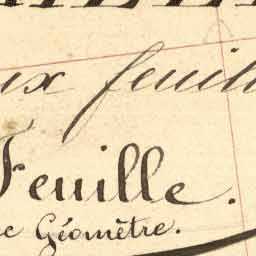 ux feuill
Feuille.
e Géomètre.